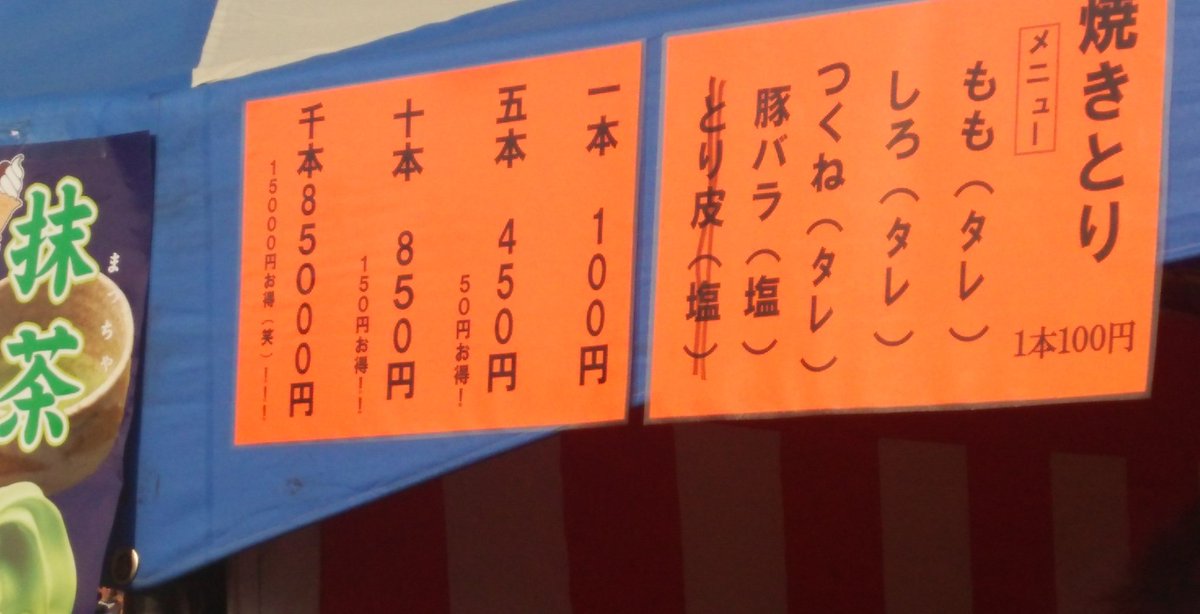 焼きとり
メニュー
1本100円
もも（タレ）
しろ（タレ）
つくね（タレ）
豚バラ（塩）
とり皮（塩）
一本 100円
五本 450円
50円お得！
十本 850円
150円お得！！
千本85000円
15000円お得（笑）！！！
抹茶
まっちゃ